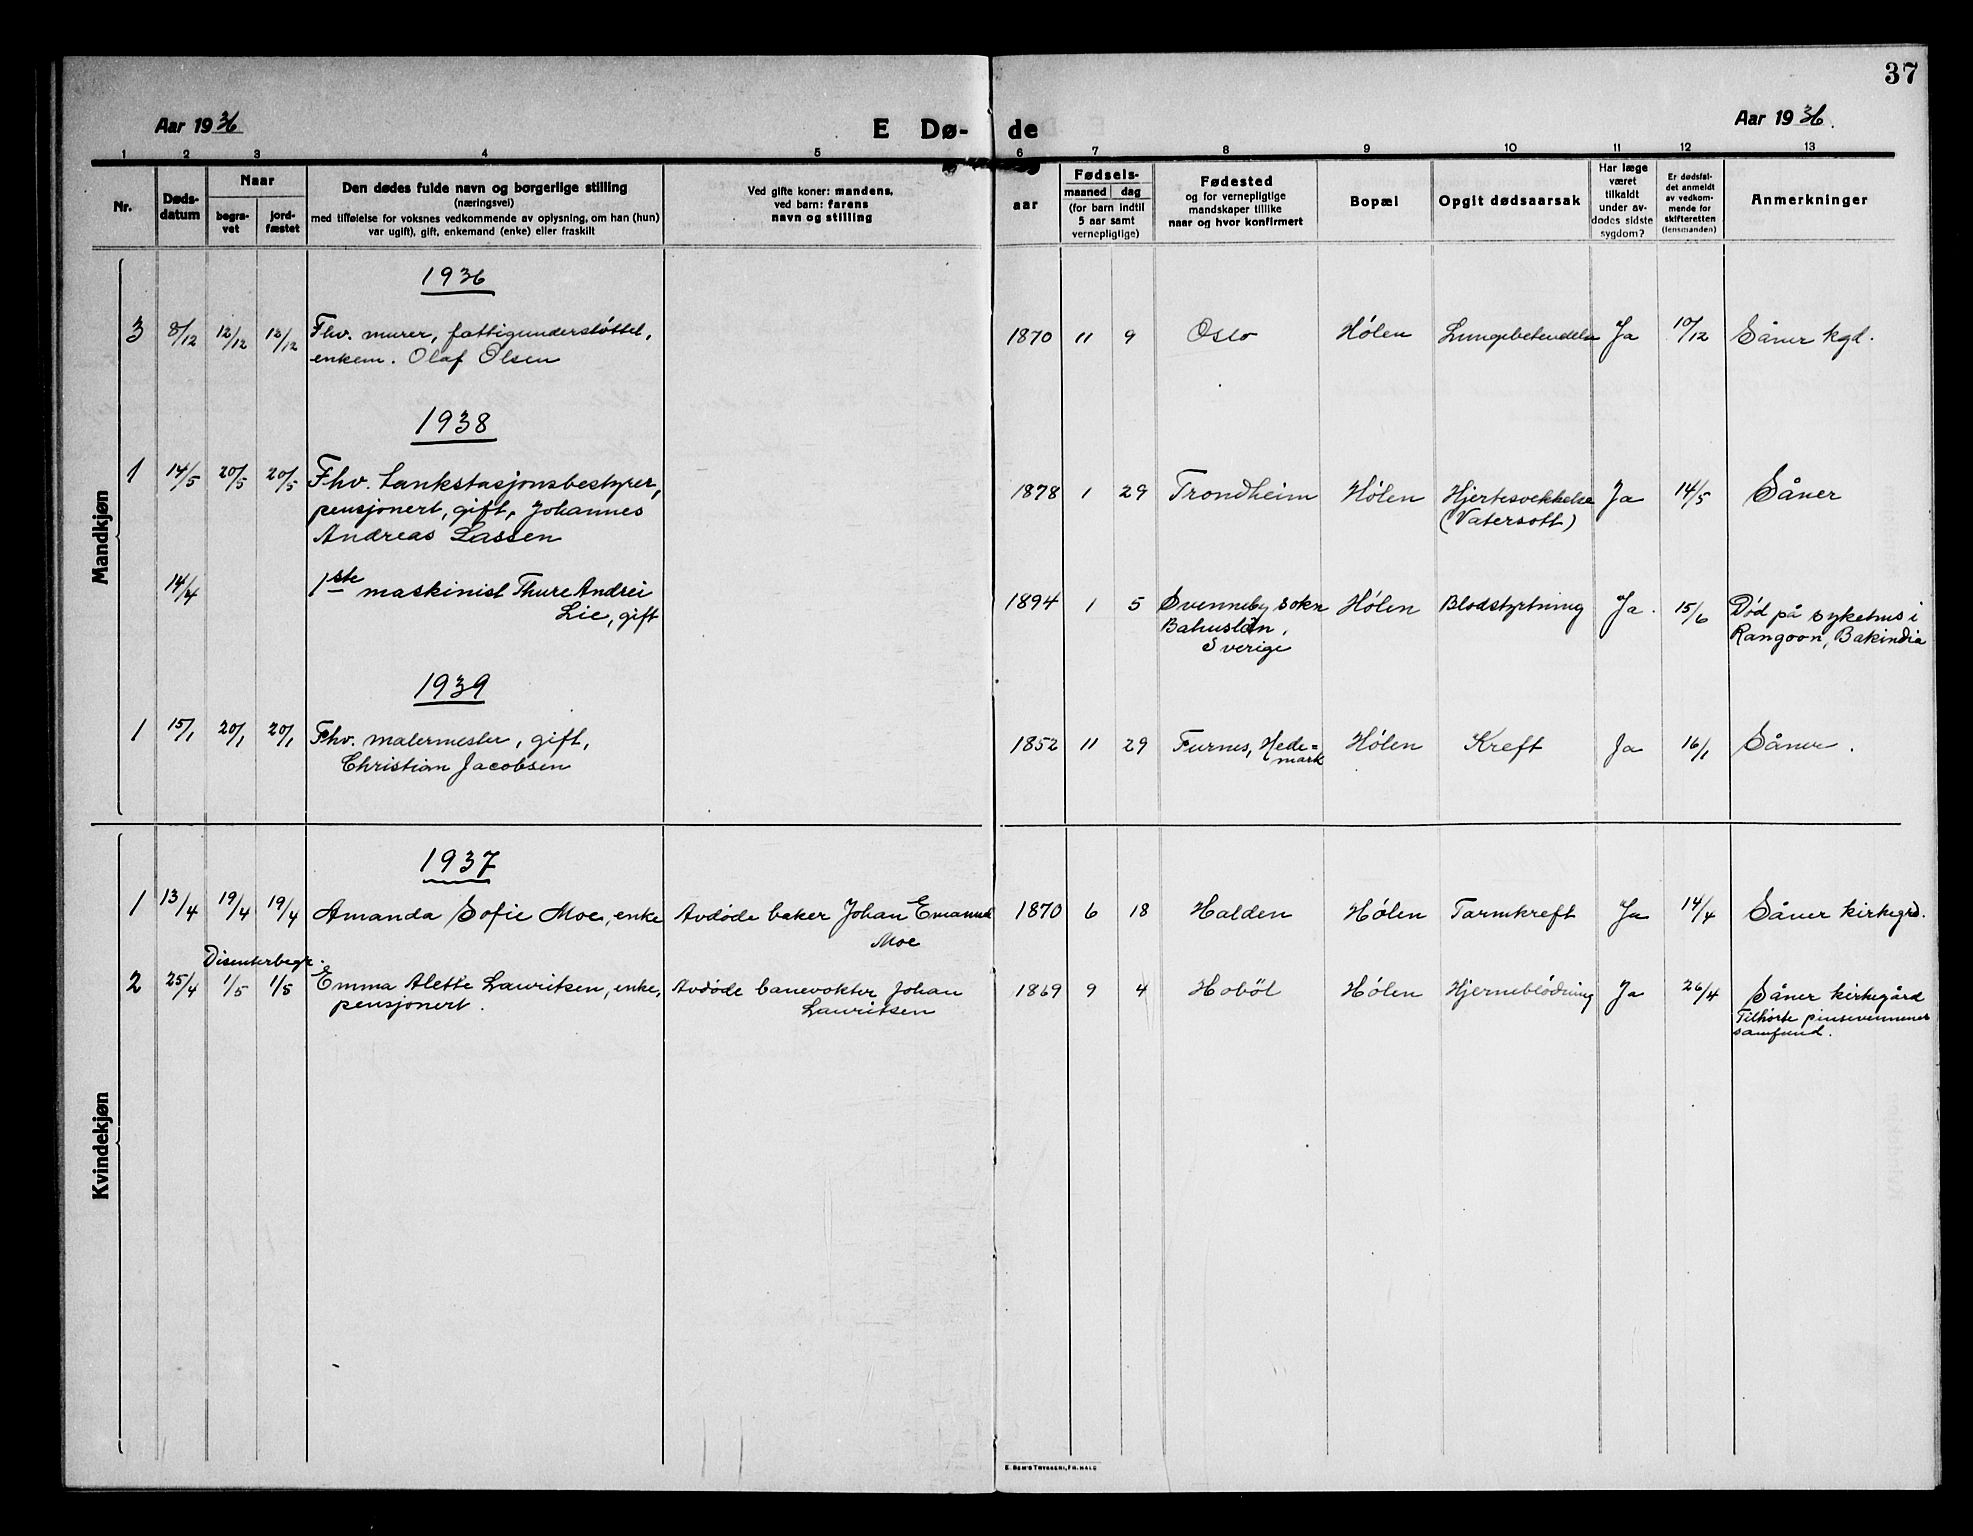 37
Aar 1936
E Dø-
de
Aar 1936.
1 2 3 4 5 6 7 8 9 10 11 12 13
Nr.
Døds-
datum
Naar
begra-
vet
jord-
fæstet
Den dødes fulde navn og borgerlige stilling
(næringsvei)
med tilføielse for voksnes vedkommende av oplysning, om han (hun)
var ugift), gift, enkemand (enke) eller fraskilt
Ved gifte koner: mandens,
ved barn: farens
navn og stilling
aar
Fødsels-
maaned dag
(for barn indtil
5 aar samt
vernepligtige)
Fødested
og for vernepligtige
mandskaper tillike
naar og hvor konfirmert
Bopæl
Opgit dødsaarsak
Har læge
været
tilkaldt
under av-
dødes sidste
sygdom?
Er dødsfal-
det anmeldt
av vedkom-
mende for
skifteretten
(lensmanden)
Anmerkninger
Mandkjøn
1936
3 8/12 12/12 12/12 Fhv. murer, fattigunderstøttet,
enkem. Olaf Olsen
1870 11 9 Oslo Hølen Lungebetendelse Ja 10/12 Såner kgd.
1938
1 14/5 20/5 20/5 Fhv. tankstasjonsbestyrer,
pensjonert, gift, Johannes
Andreas Lassen
1878 1 29 Trondheim Hølen Hjertesvekkelse Ja 14/5 Såner
(Vatersott)
14/4 1ste maskinist Thure Andrei
Lie, gift
1894 1 5 Svenneby sokn Hølen Blodstyrtning Ja. 15/6 Død på sykehus i
Bahuslän, Rangoon, Bakindia
Sverige
1939
1 15/1 20/1 20/1 Fhv. malermester, gift,
Christian Jacobsen
1852 11 29 Furnes, Hede= Hølen Kreft Ja 16/1 Såner.
mark
Kvindekjøn
1937
1 13/4 19/4 19/4 Amanda Sofie Moe, enke Avdøde baker Johan Emanuel
Moe
1870 6 18 Halden Hølen Tarmkreft Ja 14/4 Såner kirkegrd.
Disenterbegr.
2 25/4 1/5 1/5 Emma Alette Lauritsen, enke, Avdøde banevokter Johan
pensjonert. Lauritsen
1869 9 4 Hobøl Hølen Hjerneblødning Ja 26/4 Såner kirkegård
Tilhørte pinsevennenes
samfund.
E. SEM'S TRYKKERI, FR.HALD